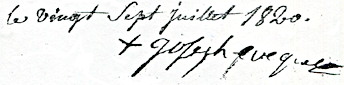 le vingt Sept juillet 1820.
+ joseph eveque